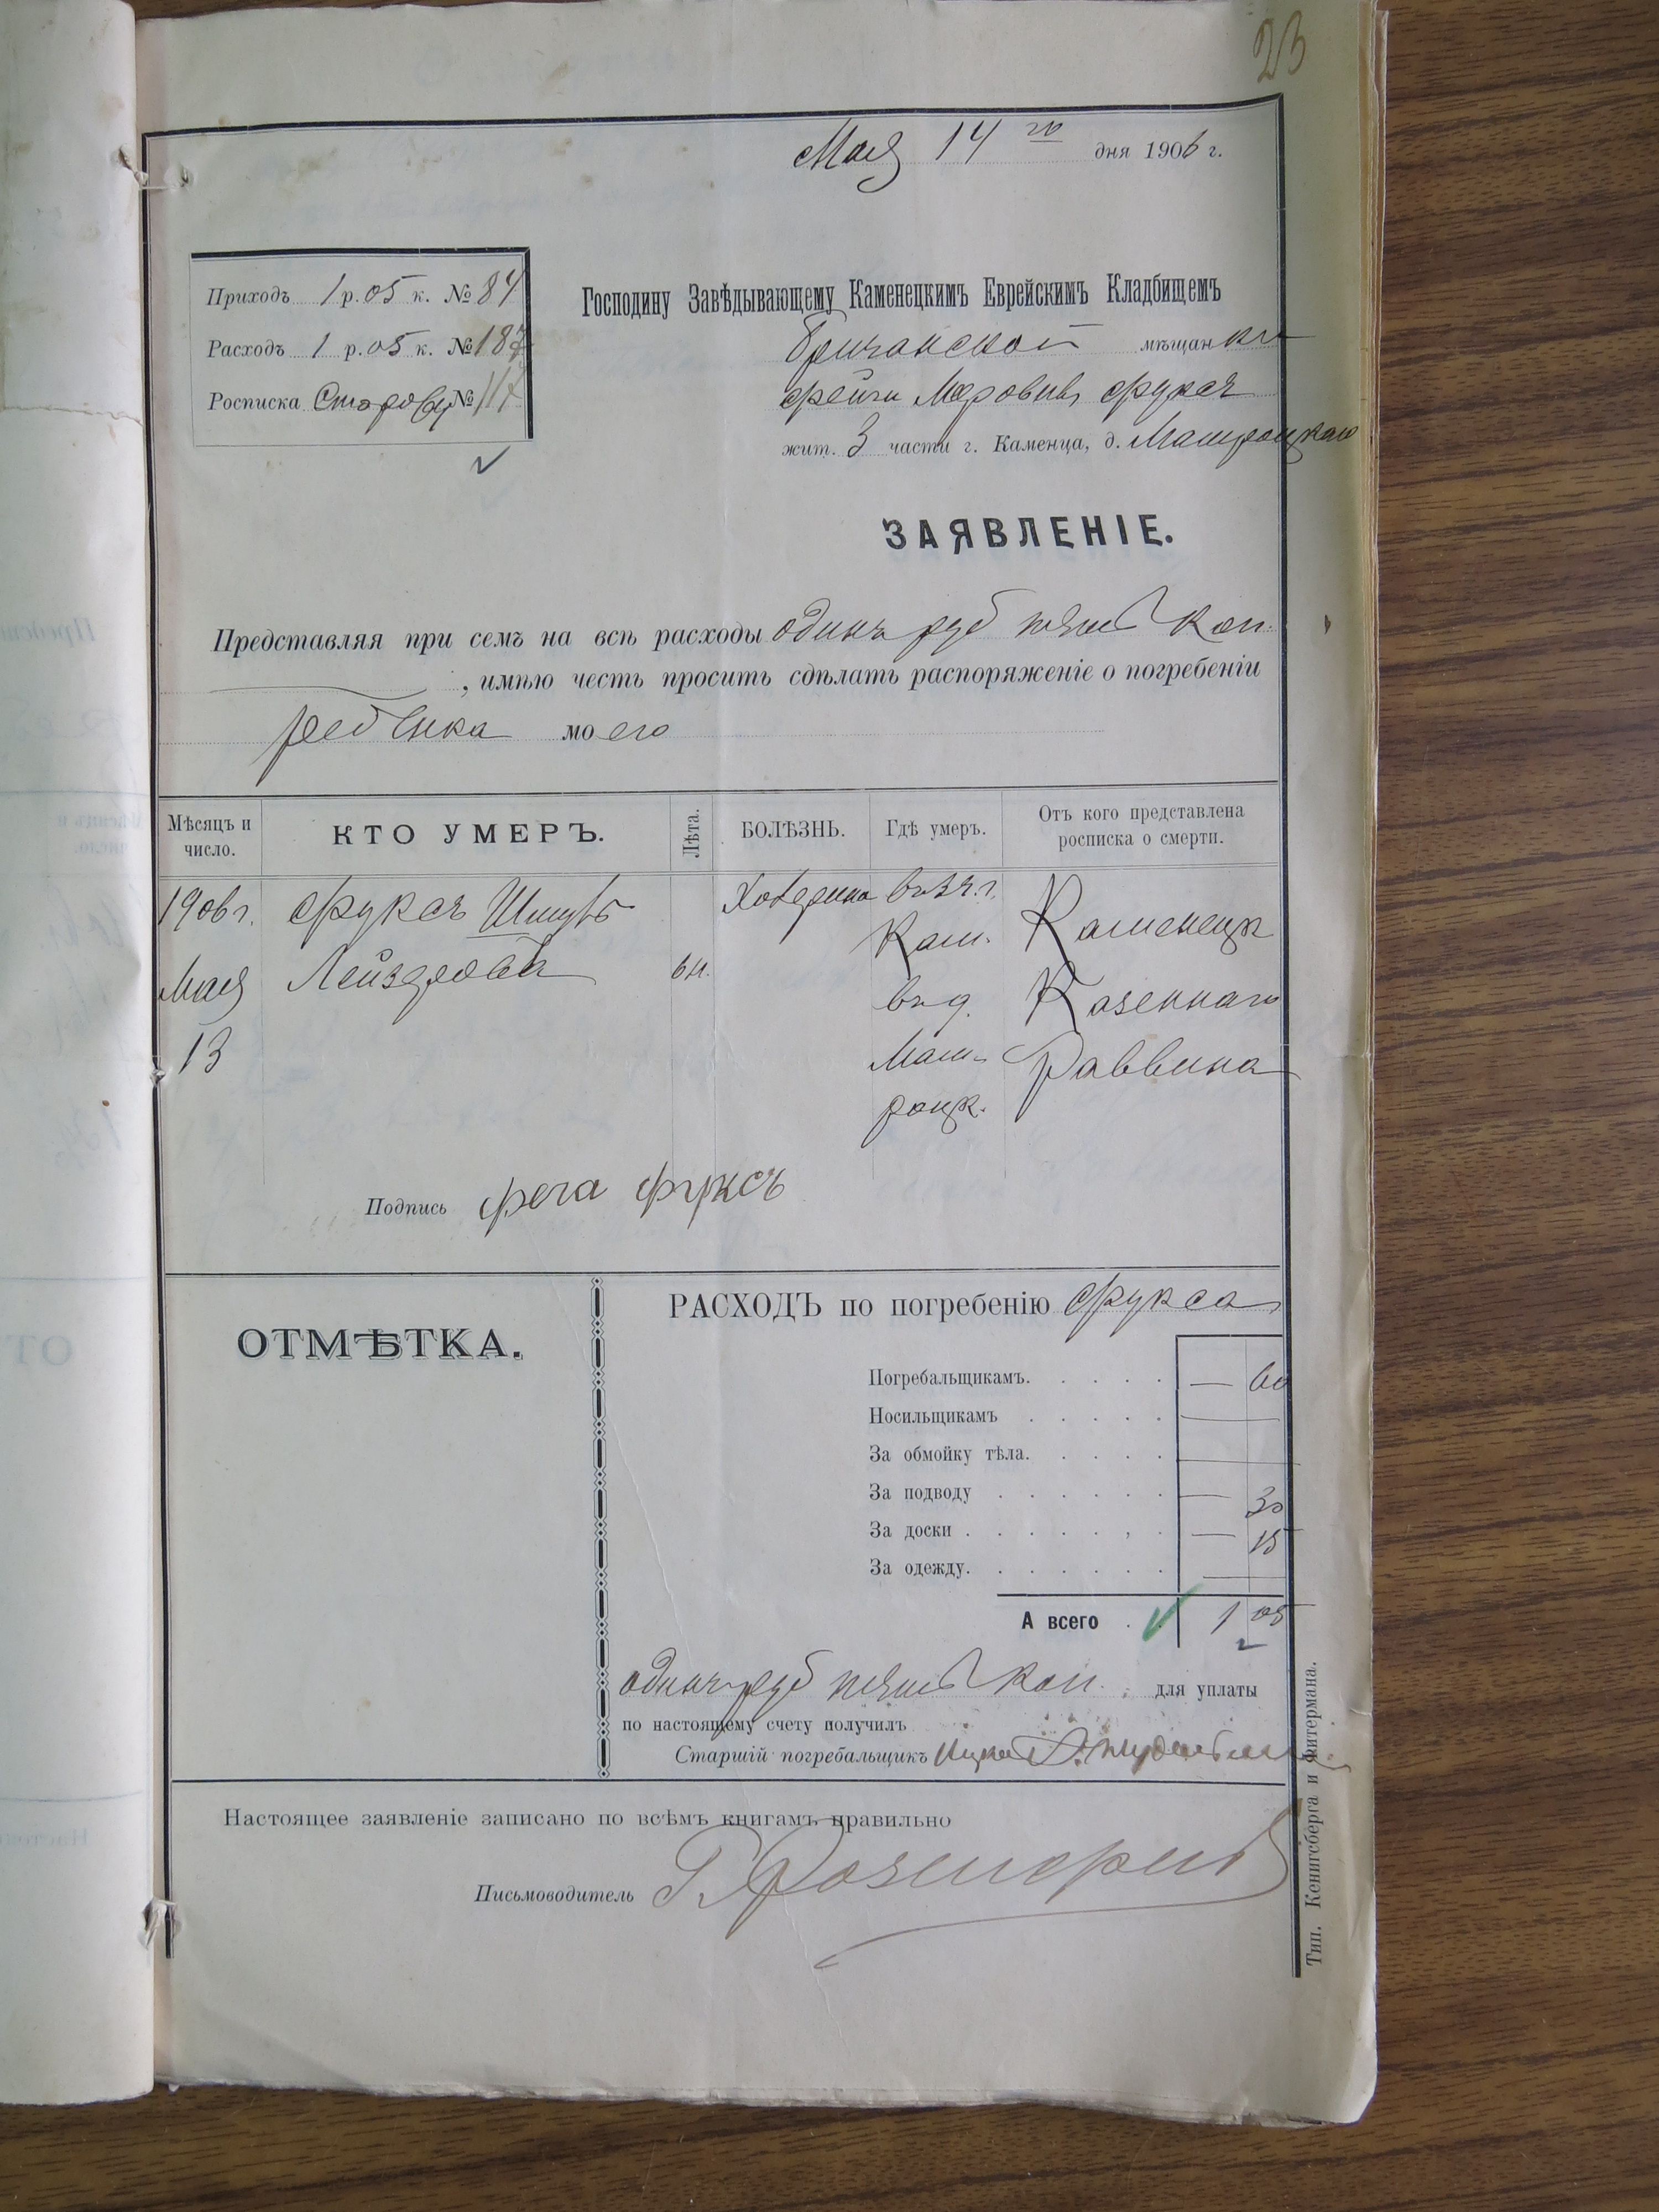 23
Мая 14 го дня 1906 г.
Приходъ 1 р. 05 к. № 84
Расходъ 1 р. 05 к. № 187
Росписка № 117
Господину Завѣдывающему Каменецкимъ Еврейскимъ Кладбищемъ
Бричанской мѣщанки
Фейги Меровны Фуксъ
жит. 3 части г. Каменца, д.
ЗАЯВЛЕНІЕ.
Представляя при семъ на всѣ расходы одинъ руб пять коп.
, имѣю честь просить сдѣлать распоряженіе о погребеніи
ребенка моего
Мѣсяцъ и число.
КТО УМЕРЪ.
Лѣта.
БОЛѢЗНЬ.
Гдѣ умеръ.
Отъ кого представлена росписка о смерти.
1906 г. Фуксъ въ 3 ч. г.
Кам. Каменецк
Мая 6 м.
въ д. Казеннаго
13 Раввина
Подпись Фега Фуксъ
ОТМѢТКА.
РАСХОДЪ по погребенію Фукса
Погребальщикамъ. . . . . — 60
Носильщикамъ . . . . . —
За обмойку тѣла. . . . . —
За подводу . . . . . . — 30
За доски . . . . . , . — 15
За одежду. . . . . . . —
А всего . 1 05
одинъ руб пять коп. для уплаты
по настоящему счету получилъ
Старшій погребальщикъ
Настоящее заявленіе записано по всѣмъ книгамъ правильно
Письмоводитель
Тип. Кенигсберга и Житермана.